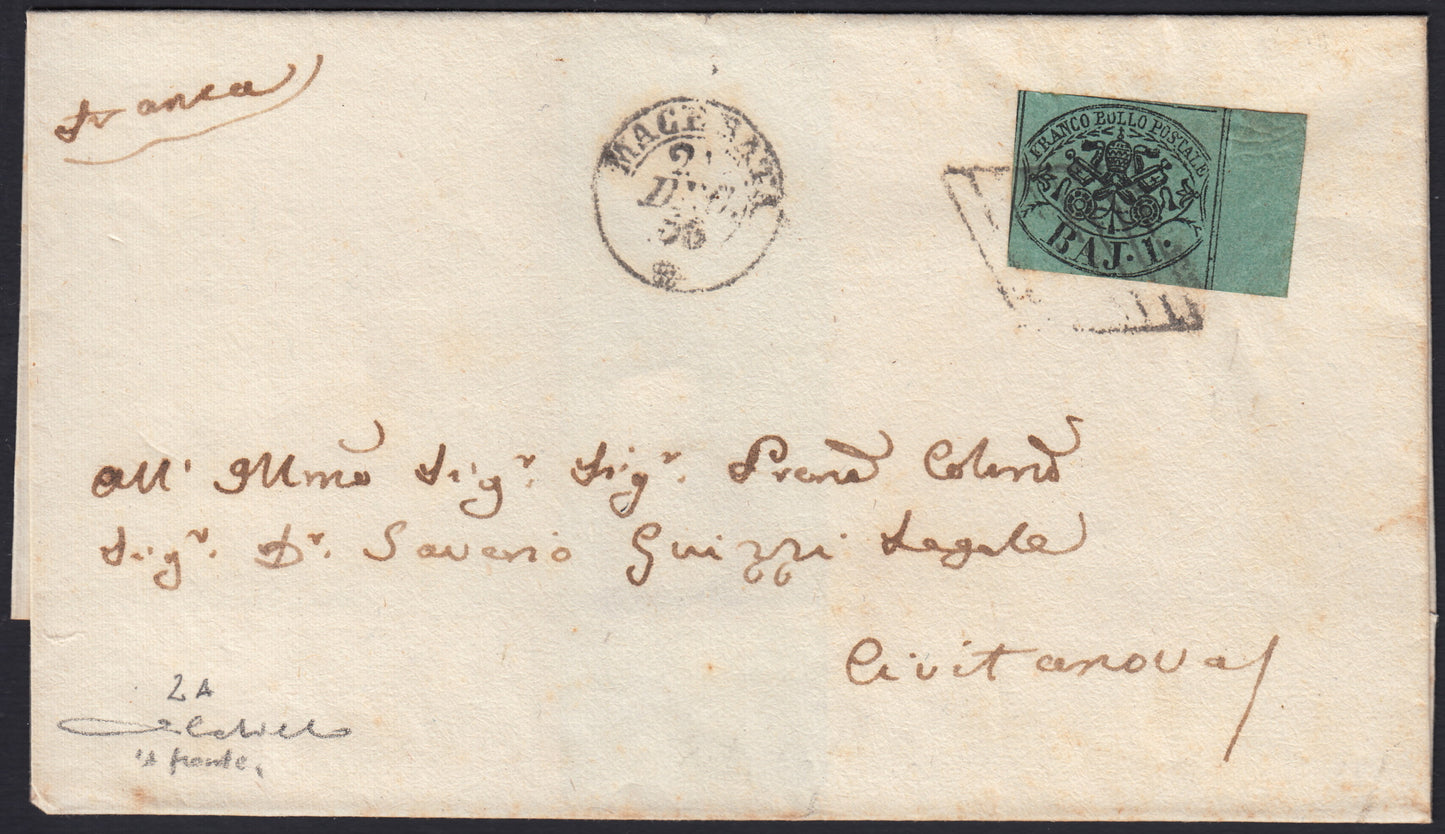 franca
MACERATA
2
DIC.
56
FRANCO BOLLO POSTALE
BAJ. 1.
All' Illmo Sigr. Sigr. Prone Colmo
Sigr. Dr. Saverio Guizzi Legale
Civitanova
2A